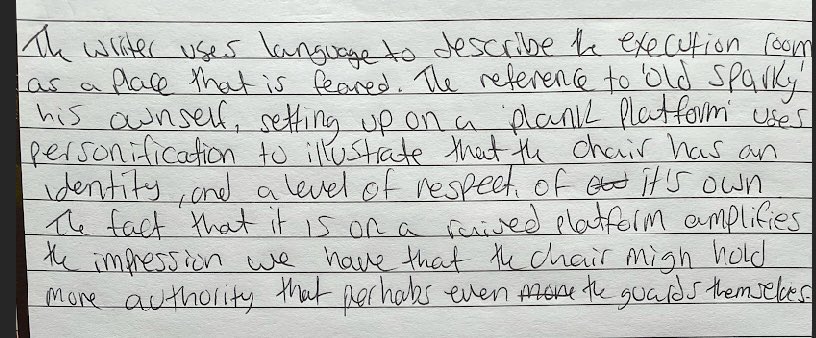 The writer uses language to describe the execution room
as a place that is feared. The reference to 'old sparky
his ownself, setting up on a plank platform' uses
personification to illustrate that the chair has an
identity, and a level of respect, of it's own
The fact that it is on a raised platform amplifies
the impression we have that the chair migh hold
more authority that perhabs even the guards themselves.